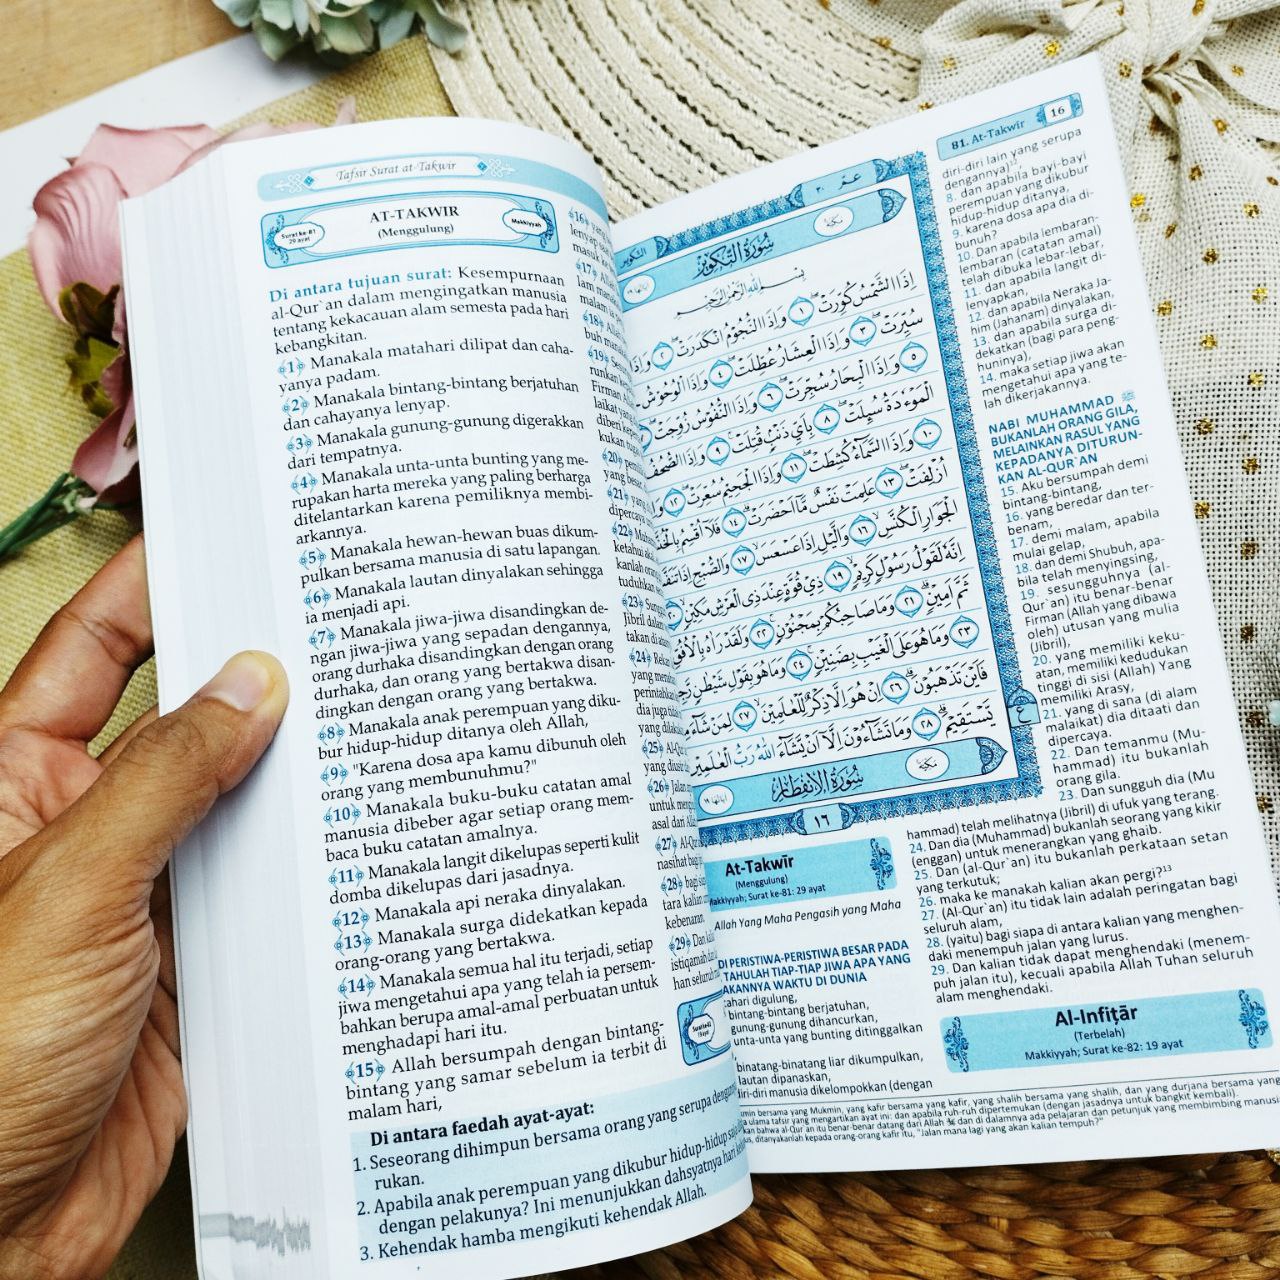 Tafsir Surat at-Takwir
Surat ke-81
29 ayat
AT-TAKWIR
(Menggulung)
Makkiyyah
Di antara tujuan surat: Kesempurnaan
al-Qur`an dalam mengingatkan manusia
tentang kekacauan alam semesta pada hari
kebangkitan.
﴾1﴿ Manakala matahari dilipat dan caha-
yanya padam.
﴾2﴿ Manakala bintang-bintang berjatuhan
dan cahayanya lenyap.
﴾3﴿ Manakala gunung-gunung digerakkan
dari tempatnya.
﴾4﴿ Manakala unta-unta bunting yang me-
rupakan harta mereka yang paling berharga
ditelantarkan karena pemiliknya membi-
arkannya.
﴾5﴿ Manakala hewan-hewan buas dikum-
pulkan bersama manusia di satu lapangan.
﴾6﴿ Manakala lautan dinyalakan sehingga
ia menjadi api.
﴾7﴿ Manakala jiwa-jiwa disandingkan de-
ngan jiwa-jiwa yang sepadan dengannya,
orang durhaka disandingkan dengan orang
durhaka, dan orang yang bertakwa disan-
dingkan dengan orang yang bertakwa.
﴾8﴿ Manakala anak perempuan yang diku-
bur hidup-hidup ditanya oleh Allah,
﴾9﴿ "Karena dosa apa kamu dibunuh oleh
orang yang membunuhmu?"
﴾10﴿ Manakala buku-buku catatan amal
manusia dibeber agar setiap orang mem-
baca buku catatan amalnya.
﴾11﴿ Manakala langit dikelupas seperti kulit
domba dikelupas dari jasadnya.
﴾12﴿ Manakala api neraka dinyalakan.
﴾13﴿ Manakala surga didekatkan kepada
orang-orang yang bertakwa.
﴾14﴿ Manakala semua hal itu terjadi, setiap
jiwa mengetahui apa yang telah ia persem-
bahkan berupa amal-amal perbuatan untuk
menghadapi hari itu.
﴾15﴿ Allah bersumpah dengan bintang-
bintang yang samar sebelum ia terbit di
malam hari,
Di antara faedah ayat-ayat:
1. Seseorang dihimpun bersama orang yang serupa
rukan.
2. Apabila anak perempuan yang dikubur hidup-hidup
dengan pelakunya? Ini menunjukkan dahsyatnya hari
3. Kehendak hamba mengikuti kehendak Allah.
81. At-Takwīr 16
عَمَّ ٣٠
سُورَةُ التَّكْوِيرِ
بِسْمِ اللَّهِ الرَّحْمَٰنِ الرَّحِيمِ
إِذَا الشَّمْسُ كُوِّرَتْ ١ وَإِذَا النُّجُومُ انكَدَرَتْ ٢ وَإِذَا
سُيِّرَتْ ٣ وَإِذَا الْعِشَارُ عُطِّلَتْ ٤ وَإِذَا الْوُحُوشُ
٥ وَإِذَا الْبِحَارُ سُجِّرَتْ ٦ وَإِذَا النُّفُوسُ زُوِّجَتْ
الْمَوْءُدَةُ سُئِلَتْ ٨ بِأَيِّ ذَنۢبٍ قُتِلَتْ ٩ وَإِذَا الصُّحُفُ
١٠ وَإِذَا السَّمَاءُ كُشِطَتْ ١١ وَإِذَا الْجَحِيمُ سُعِّرَتْ ١٢
أُزْلِفَتْ ١٣ عَلِمَتْ نَفْسٌ مَّا أَحْضَرَتْ ١٤ فَلَا أُقْسِمُ
الْجَوَارِ الْكُنَّسِ ١٦ وَاللَّيْلِ إِذَا عَسْعَسَ ١٧ وَالصُّبْحِ إِذَا
إِنَّهُ لَقَوْلُ رَسُولٍ كَرِيمٍ ١٩ ذِي قُوَّةٍ عِندَ ذِي الْعَرْشِ مَكِينٍ ٢٠
ثَمَّ أَمِينٍ ٢١ وَمَا صَاحِبُكُم بِمَجْنُونٍ ٢٢ وَلَقَدْ رَآهُ بِالْأُفُقِ
٢٣ وَمَا هُوَ عَلَى الْغَيْبِ بِضَنِينٍ ٢٤ وَمَا هُوَ بِقَوْلِ شَيْطَانٍ
فَأَيْنَ تَذْهَبُونَ ٢٦ إِنْ هُوَ إِلَّا ذِكْرٌ لِّلْعَالَمِينَ ٢٧ لِمَن شَاءَ
يَسْتَقِيمَ ٢٨ وَمَا تَشَاءُونَ إِلَّا أَن يَشَاءَ اللَّهُ رَبُّ الْعَالَمِينَ
سُورَةُ الِانفِطَارِ
١٦
At-Takwīr
(Menggulung)
Makkiyyah; Surat ke-81: 29 ayat
Allah Yang Maha Pengasih yang Maha
PERISTIWA-PERISTIWA BESAR PADA
TIAP-TIAP JIWA APA YANG
WAKTU DI DUNIA
digulung,
bintang-bintang berjatuhan,
gunung-gunung dihancurkan,
unta-unta yang bunting ditinggalkan
binatang-binatang liar dikumpulkan,
lautan dipanaskan,
diri-diri manusia dikelompokkan (dengan
diri-diri lain yang serupa
dengannya)¹²,
8. dan apabila bayi-bayi
perempuan yang dikubur
hidup-hidup ditanya,
9. karena dosa apa dia di-
bunuh?
10. Dan apabila lembaran-
lembaran (catatan amal)
telah dibuka lebar-lebar,
11. dan apabila langit di-
lenyapkan,
12. dan apabila Neraka Ja-
him (Jahanam) dinyalakan,
13. dan apabila surga di-
dekatkan (bagi para peng-
huninya),
14. maka setiap jiwa akan
mengetahui apa yang te-
lah dikerjakannya.
NABI MUHAMMAD ﷺ
BUKANLAH ORANG GILA,
MELAINKAN RASUL YANG
KEPADANYA DITURUN-
KAN AL-QUR`AN
15. Aku bersumpah demi
bintang-bintang,
16. yang beredar dan ter-
benam,
17. demi malam, apabila
mulai gelap,
18. dan demi Shubuh, apa-
bila telah menyingsing,
19. sesungguhnya (al-
Qur`an) itu benar-benar
Firman (Allah yang dibawa
oleh) utusan yang mulia
(Jibril),
20. yang memiliki keku-
atan, memiliki kedudukan
tinggi di sisi (Allah) Yang
memiliki Arasy,
21. yang di sana (di alam
malaikat) dia ditaati dan
dipercaya.
22. Dan temanmu (Mu-
hammad) itu bukanlah
orang gila.
23. Dan sungguh dia (Mu
hammad) telah melihatnya (Jibril) di ufuk yang terang.
24. Dan dia (Muhammad) bukanlah seorang yang kikir
(enggan) untuk menerangkan yang ghaib.
25. Dan (al-Qur`an) itu bukanlah perkataan setan
yang terkutuk;
26. maka ke manakah kalian akan pergi?¹³
27. (Al-Qur`an) itu tidak lain adalah peringatan bagi
seluruh alam,
28. (yaitu) bagi siapa di antara kalian yang menghen-
daki menempuh jalan yang lurus.
29. Dan kalian tidak dapat menghendaki (menem-
puh jalan itu), kecuali apabila Allah Tuhan seluruh
alam menghendaki.
Al-Infiṭār
(Terbelah)
Makkiyyah; Surat ke-82: 19 ayat
bersama yang Mukmin, yang kafir bersama yang kafir, yang shalih bersama yang shalih, dan yang durjana bersama yang
ulama tafsir yang mengartikan ayat ini: dan apabila ruh-ruh dipertemukan (dengan jasadnya untuk bangkit kembali).
bahwa al-Qur`an itu benar-benar datang dari Allah dan di dalamnya ada pelajaran dan petunjuk yang membimbing manusia
ditanyakanlah kepada orang-orang kafir itu, "Jalan mana lagi yang akan kalian tempuh?"